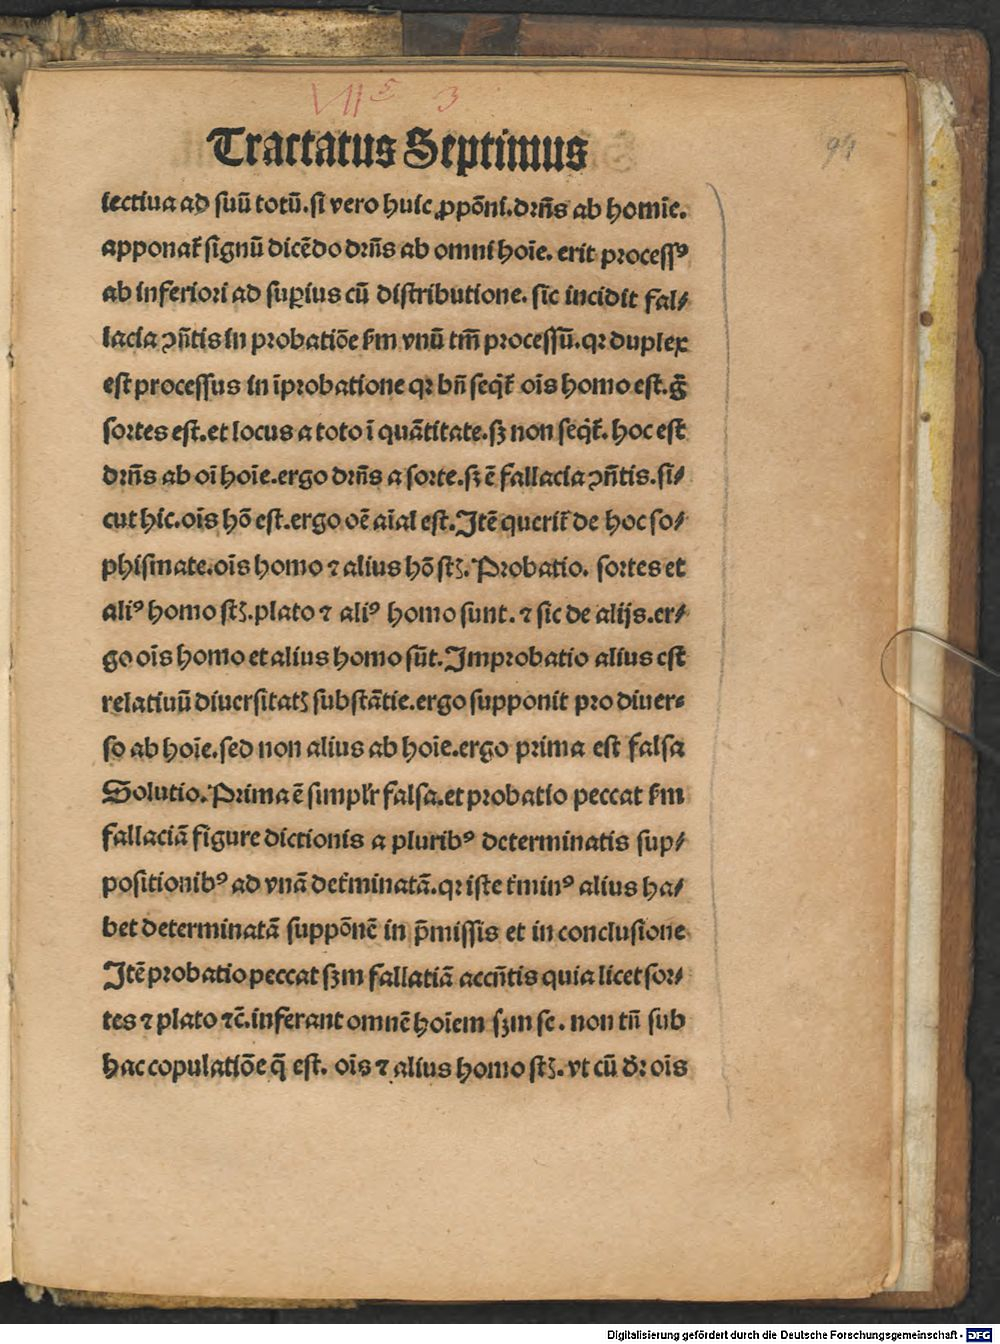 VII 3
94
Tractatus Septimus
iectiua ad suū totū. si vero huic ꝓpōni. dr̄ns ab homīe.
apponat̄ signū dicēdo dr̄ns ab omni hoīe. erit processꝰ
ab inferiori ad suꝑius cū distributione. sic incidit fal⸗
lacia ꝯñtis in probatiōe ẜm vnū tm̄ processū. qꝛ duplex
est processus in īprobatione qꝛ bñ seqͥt̄ oīs homo est. g̊
sortes est. et locus a toto ī quātitate. sꝫ non seqͥt̄. hoc est
dr̄ns ab oī hoīe. ergo dr̄ns a sorte. sꝫ ē fallacia ꝯñtis. si⸗
cut hic. oīs hō est. ergo oē aīal est. Itē querit̄ de hoc so⸗
phismate. oīs homo ⁊ alius hō stꝫ. Probatio. sortes et
aliꝰ homo stꝫ. plato ⁊ aliꝰ homo sunt. ⁊ sic de alijs. er⸗
go oīs homo et alius homo sūt. Improbatio alius est
relatiuū diuersitatꝭ substātie. ergo supponit pro diuer⸗
so ab hoīe. sed non alius ab hoīe. ergo prima est falsa
Solutio. Prima ē simpl̄r falsa. et probatio peccat ẜm
fallaciā figure dictionis a pluribꝰ determinatis sup⸗
positionibꝰ ad vnā det̄minatā. qꝛ iste t̄minꝰ alius ha⸗
bet determinatā suppōnē in p̄missis et in conclusione
Itē probatio peccat sꝫm fallatiā accñtis quia licet sor⸗
tes ⁊ plato ⁊c̄. inferant omnē hoīem sꝫm se. non tñ sub
hac copulatiōe q̄ est. oīs ⁊ alius homo stꝫ. vt cū dr̄ oīs
Digitalisierung gefördert durch die Deutsche Forschungsgemeinschaft - DFG